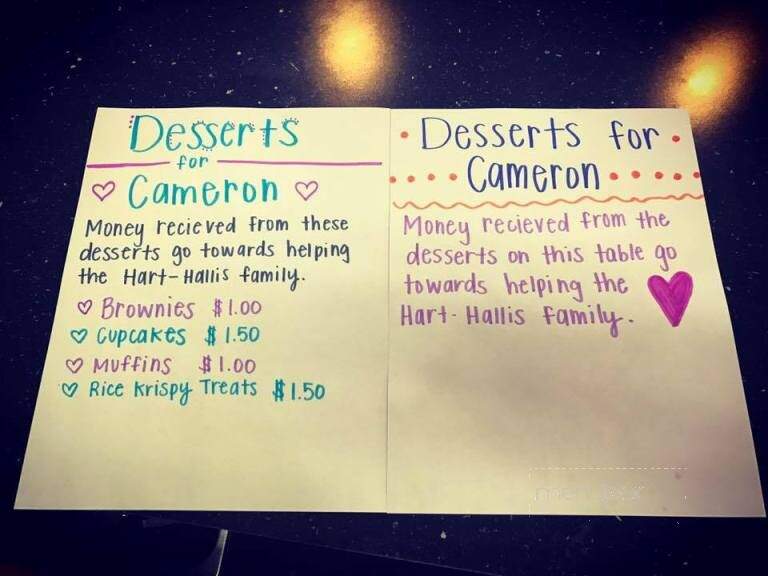 Desserts
for
♡ Cameron ♡
Money recieved from these
desserts go towards helping
the Hart-Hallis family.
♡ Brownies $1.00
♡ Cupcakes $1.50
♡ Muffins $1.00
♡ Rice Krispy Treats $1.50
• Desserts for •
• • • • Cameron • • • • •
Money recieved from the
desserts on this table go
towards helping the
Hart-Hallis family.